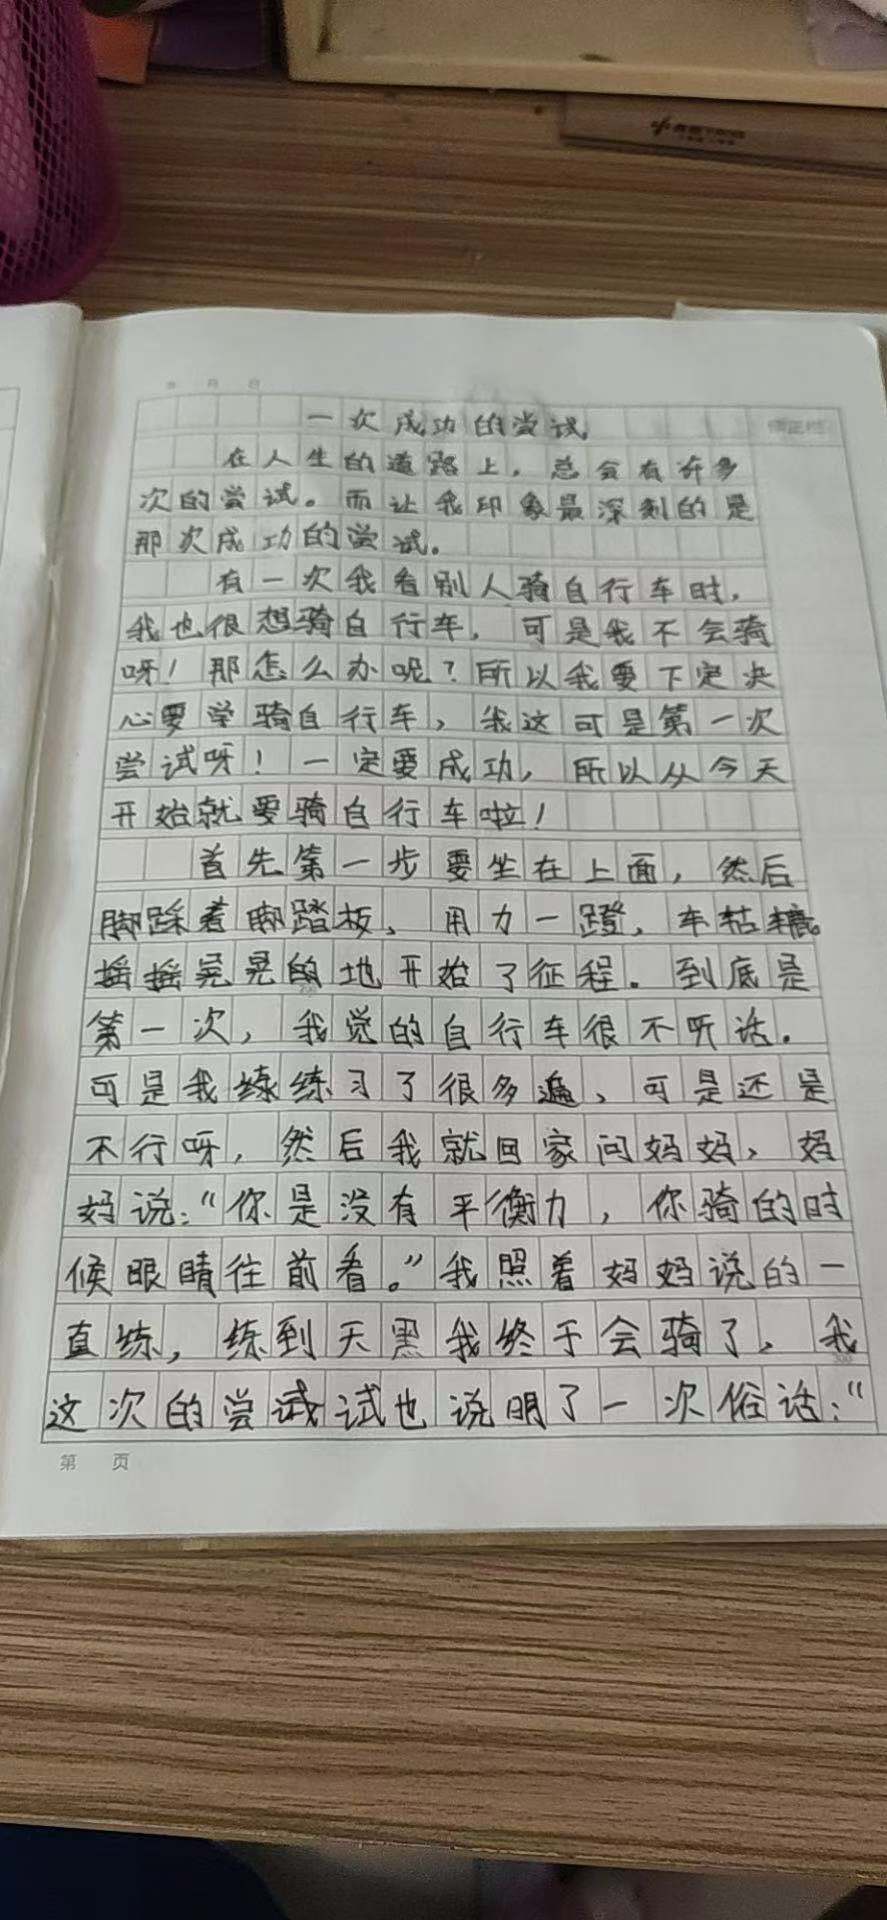 年 月 日
一次成功的尝试
在人生的道路上，总会有许多
次的尝试。而让我印象最深刻的是
那次成功的尝试。
有一次我看别人骑自行车时，
我也很想骑自行车，可是我不会骑
呀！那怎么办呢？所以我要下定决
心要学骑自行车，我这可是第一次
尝试呀！一定要成功，所以从今天
开始就要骑自行车啦！
首先第一步要坐在上面，然后
脚踩着脚踏板，用力一蹬，车
摇摇晃晃的地开始了征程。到底是
第一次，我觉的自行车很不听话。
可是我练练习了很多遍，可是还是
不行呀，然后我就回家问妈妈，妈
妈说：“你是没有平衡力，你骑的时
候眼睛往前看。”我照着妈妈说的一
直练，练到天黑我终于会骑了，我
这次的尝试试也说明了一次俗话：“
第 页